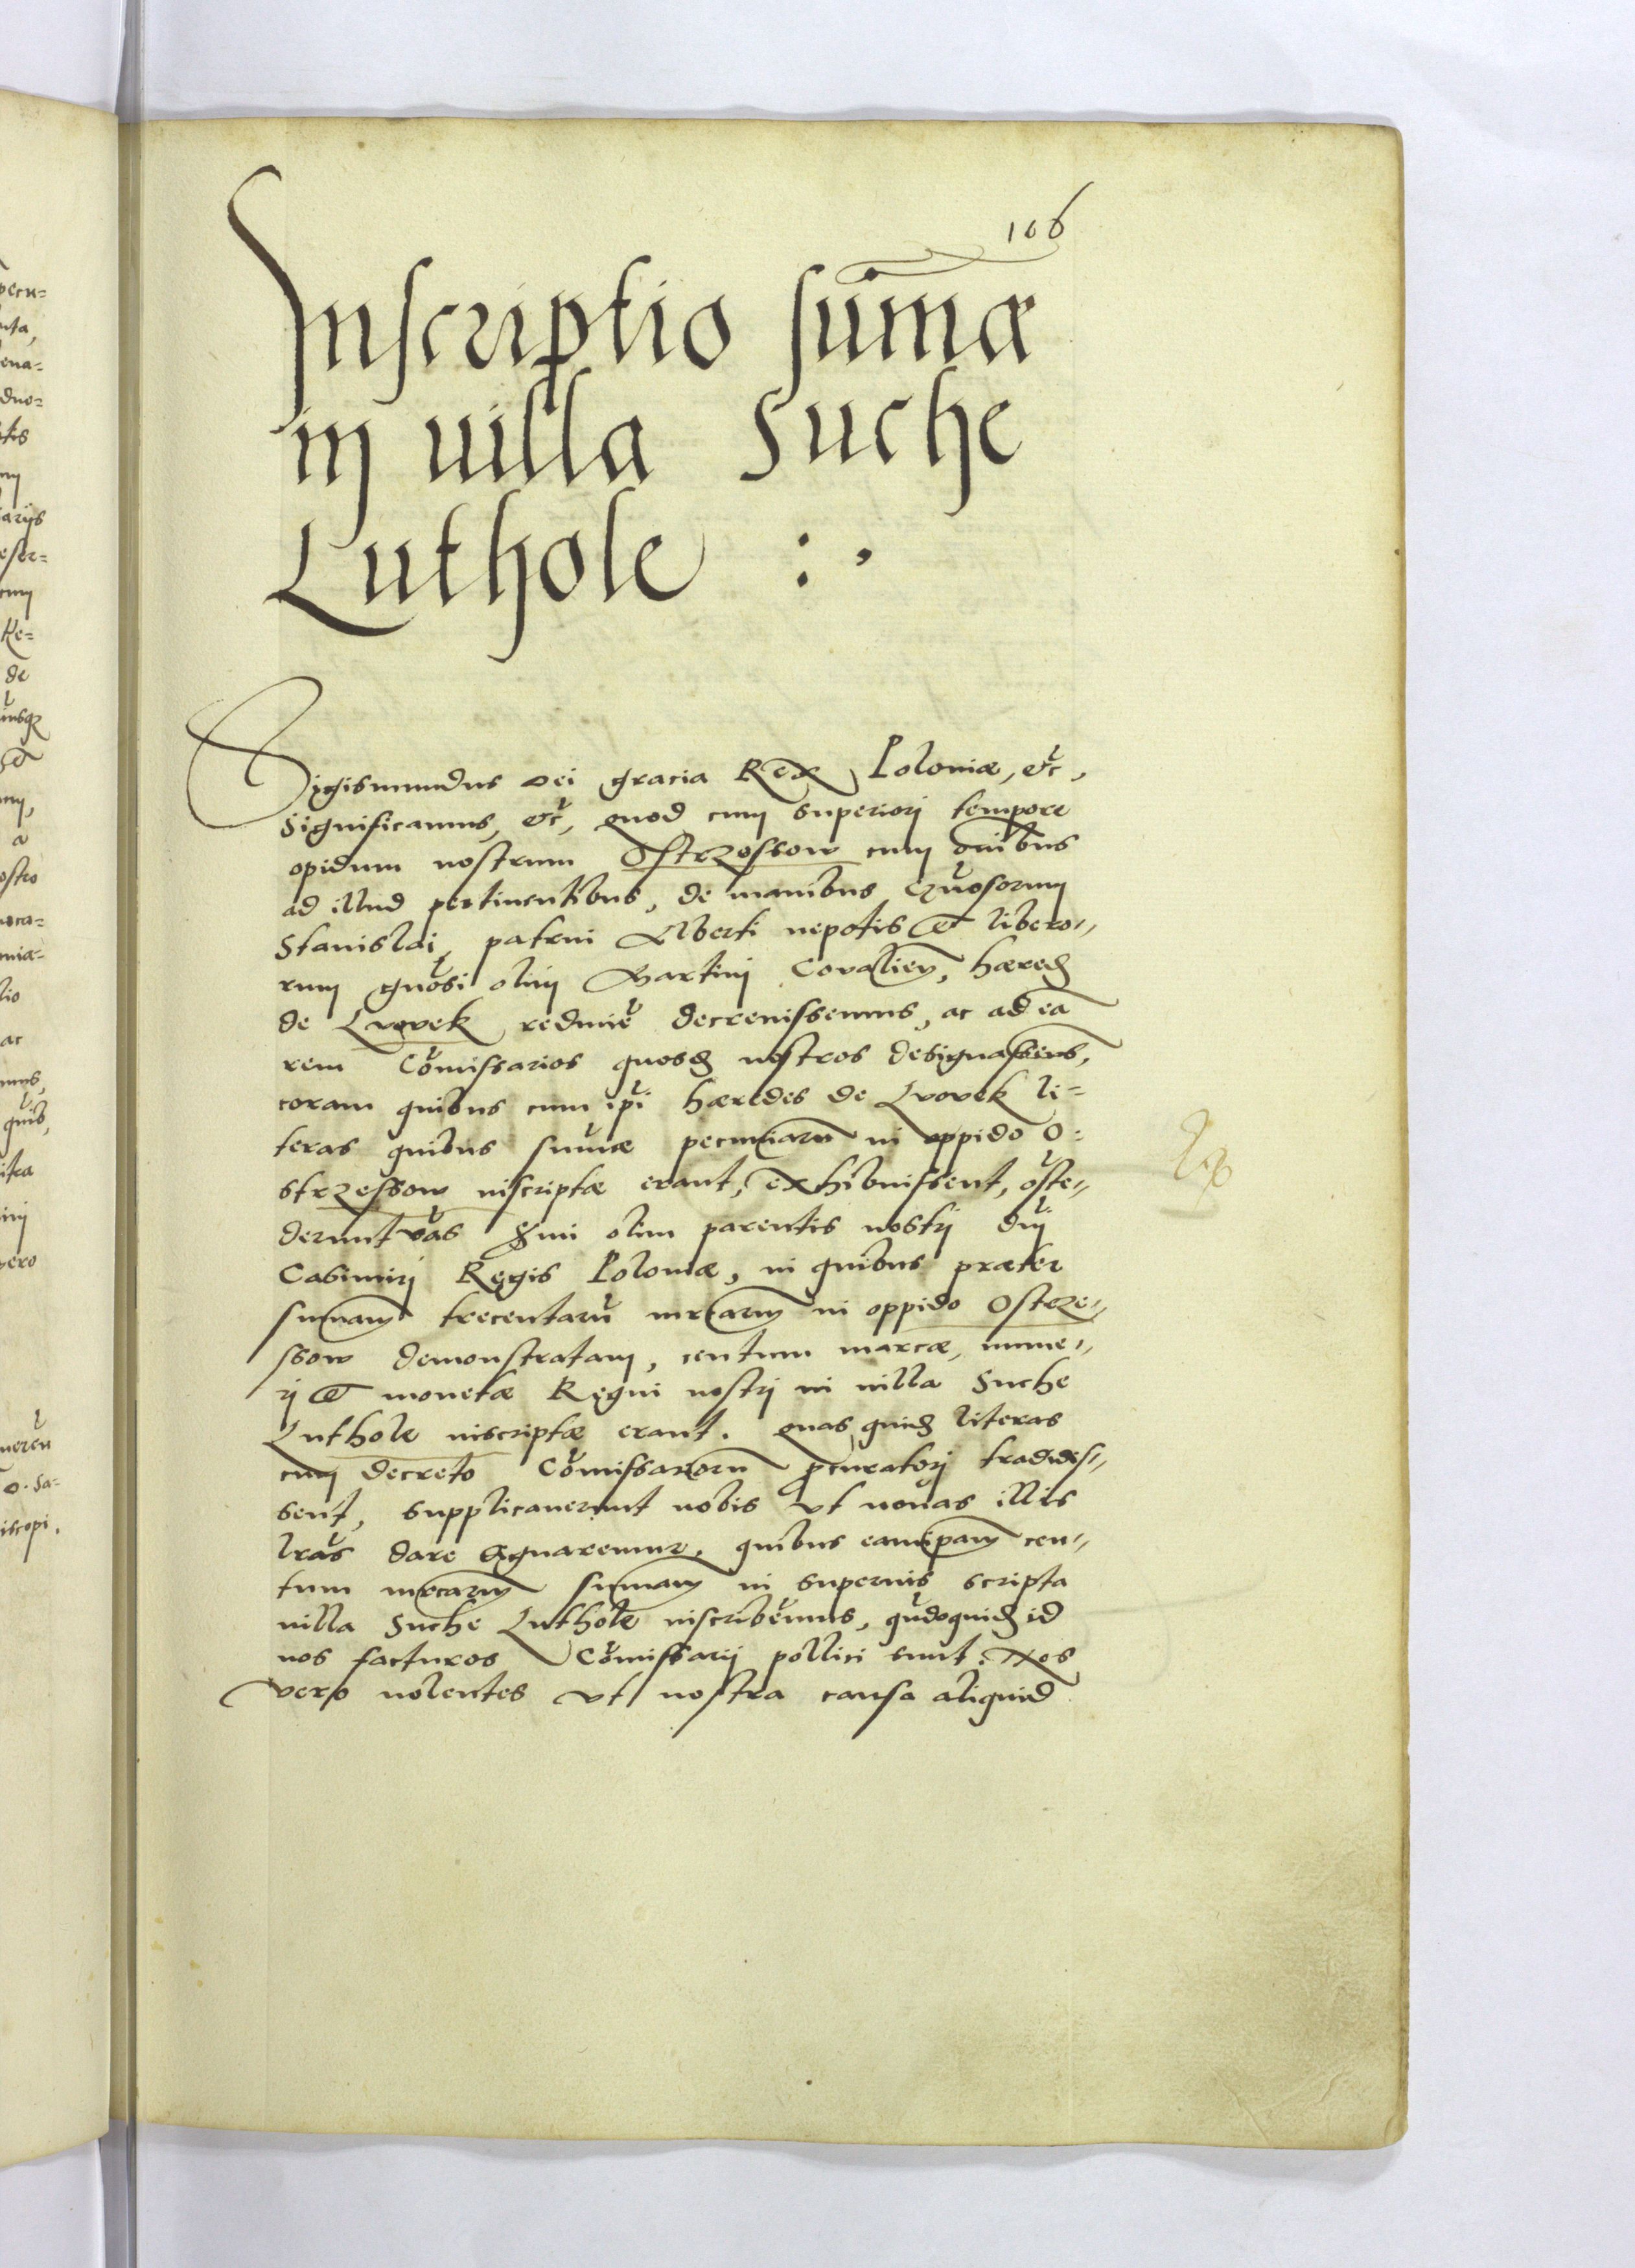 106
Inscriptio sum̄æ
in uilla Suche
Luthole :,
Sigismundus Dei gracia Rex Poloniæ, etc̃,
Significamus, etc̃, quod cum superiori tempore
opidum nostrum Ostrzossow cum om̃ibus
ad illud pertinentibus, de manibus gñosorum
Stanislai patrui Alberti nepotis et libero,,
rum gñosi olim Martini Covalien̄, hæred
de Lvovek redimẽ decrevissemus, ac ad eā
rem Cõmissarios quosd nostros designassem9,
coram quibus cum ip̃i hæredes de Lvovek li=
teras quibus sum̃æ pecuniarū in oppido O=
strzessow inscriptæ erant, exhibuissent, oste,,
derunt lr̃as Smi olim parentis nostri dñi
Casimiri Regis Poloniæ, in quibus præter
sum̄am trecentarũ mrcarum in oppido Ostrze,,
ssow demonstratam, centum marcæ, nume,,
ri et monetæ Regni nostri in uilla Suche
Luthole inscriptæ erant. quas quid literas
cum decreto Cõmissariorū pcuratori tradidis,,
sent, supplicauerunt nobis vt nouas illis
lr̃as dare dignaremur, quibus eam ip̄am cen,,
tum mrcarum sum̄am in superius scripta
uilla Suche Luthole inscribẽmus, qũdoquid id
nos facturos Cõmissarij pollici sunt. Nos
vero nolentes vt nostra causa aliquid